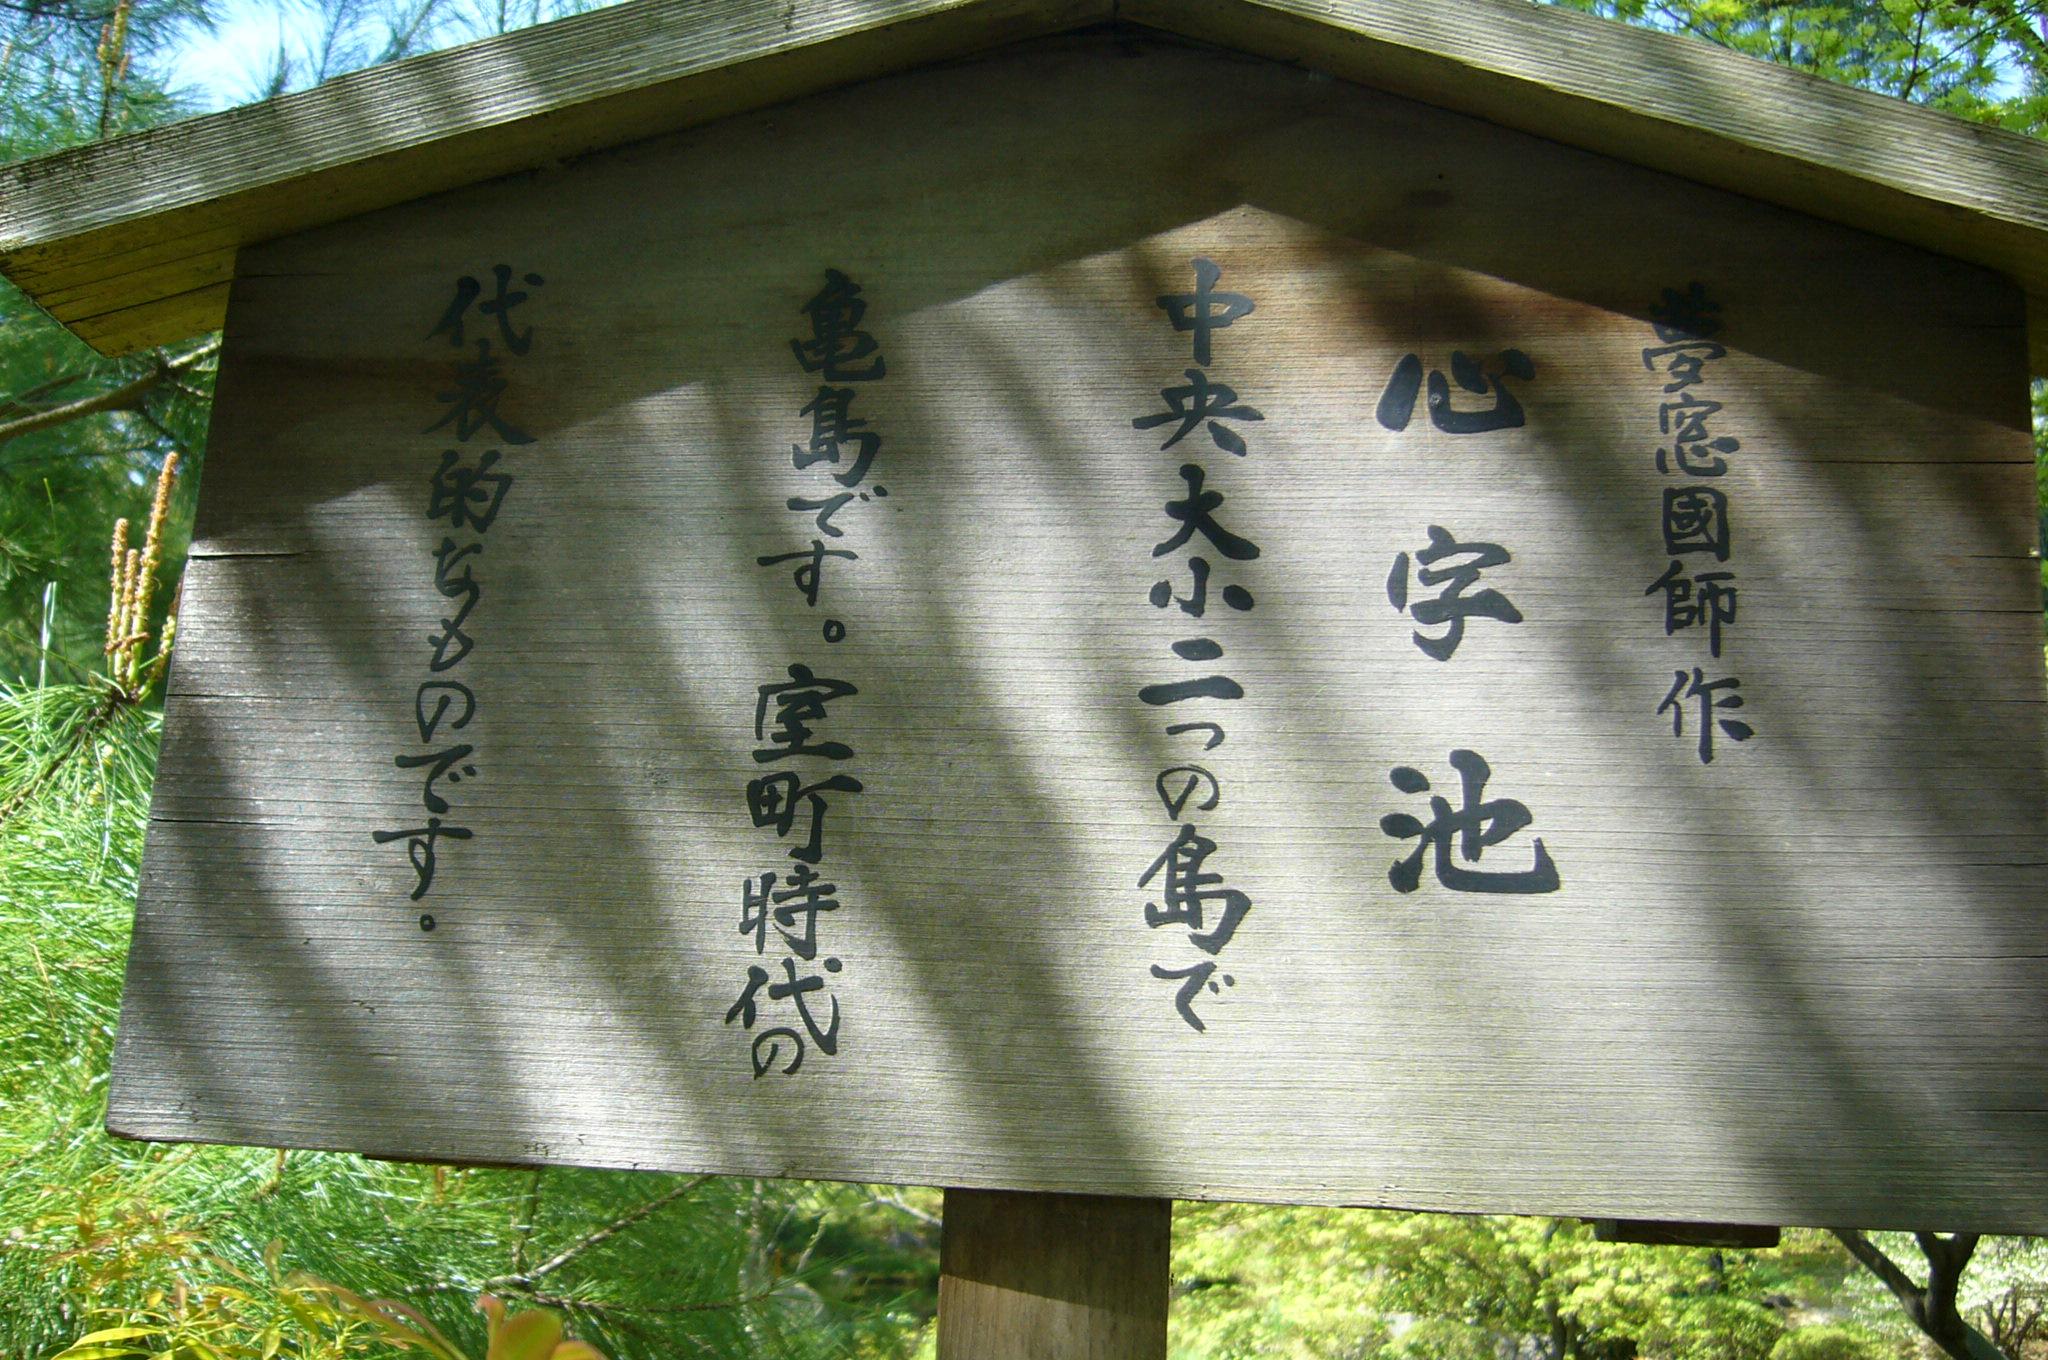 夢窓國師作
心字池
中央大小二つの島で
亀島です。室町時代の
代表的なものです。